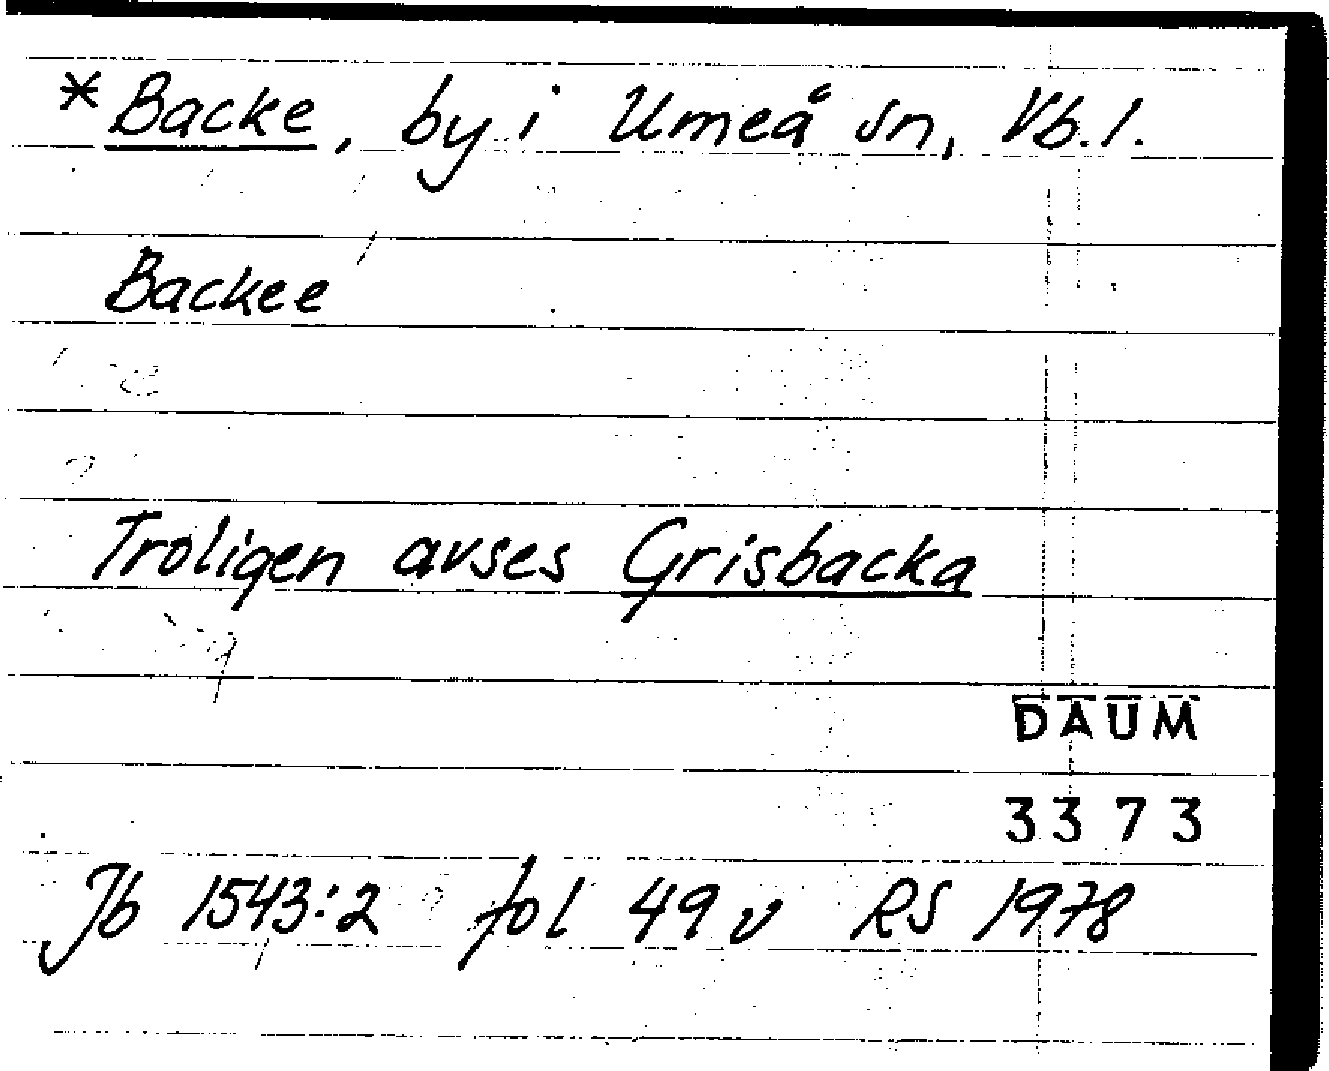 *Backe, by i Umeå sn, Vb.l.
Backee
Troligen avses Grisbacka
DAUM
3373
Jb 1543:2 fol 49 v RS 1978